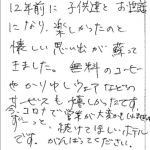 12年前に子供達とお世話
になり、楽しかったのと
懐しい思い出が蘇って
きました。無料のコーヒー
やかりゆしウェアなどの
サービスも懐しかったです。
コロナで営業が大変かも
ずーっと、続けてほしいホテル
です。がんばってください。